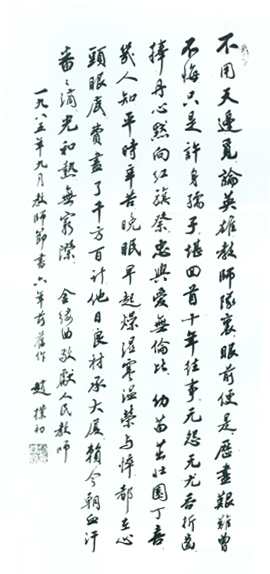 不用天邊覓論英雄教師隊裏眼前便是歷盡艱難曾
不悔只是許身孺子堪回首十年往事无怨无尤吞折齒
捧丹心默向红旗祭忠與愛無倫比 幼苗茁壯園丁喜
幾人知平時辛苦晚眠早起燥濕寒溫榮与悴都在心
頭眼底費盡了千方百計他日良材承大厦賴今朝血汗
番〻滴光和熱無窮際 金縷曲敬献人民教師
一九八五年九月教師節書六年前舊作 趙樸初